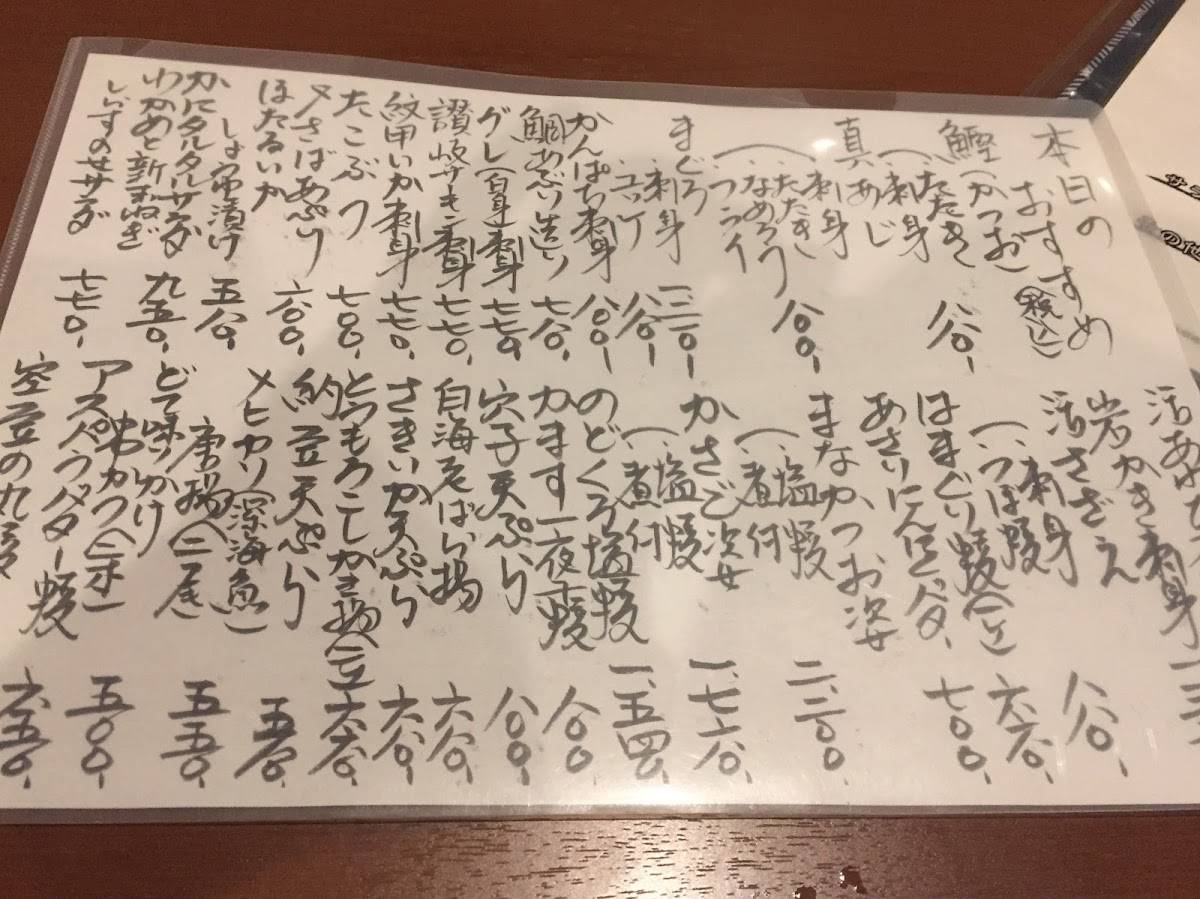 本日の
おすすめ
(税込)
鰹(かつお)
たたき
刺身
八八〇、
真あじ
刺身
たたき
なめろう
フライ
八八〇、
まぐろ
刺身
一、三二〇、
ユッケ
八八〇、
かんぱち刺身
八八〇、
鯛あぶり造り
七七〇、
グレ(白身)刺身
七七〇、
讃岐サーモン刺身
七七〇、
紋甲いか刺身
七七〇、
たこぶつ
七七〇、
〆さばあぶり
六六〇、
ほたるいか
しょう油漬け
五五〇、
かにタルタルサラダ
九五〇、
わかめと新玉ねぎ
しらすのサラダ
七七〇、
岩かき刺身
活さざえ
刺身
つぼ焼
八八〇、
はまぐり焼
六六〇、
あさりにんにくバター
七七〇、
まなかつお姿
塩焼
煮付
二、二〇〇、
かさご姿
塩焼
煮付
一、七六〇、
のどくろ塩焼
一、五四〇、
かます一夜干焼
八八〇、
穴子天ぷら
八八〇、
白海老から揚
六六〇、
さきいか天ぷら
六六〇、
とうもろこしかき揚
六六〇、
納豆天ぷら
五五〇、
メヒカリ(深海魚)
唐揚(二尾)
五五〇、
どて味噌かけ
串かつ(二本)
五〇〇、
アスパラバター焼
六五〇、
空豆の丸